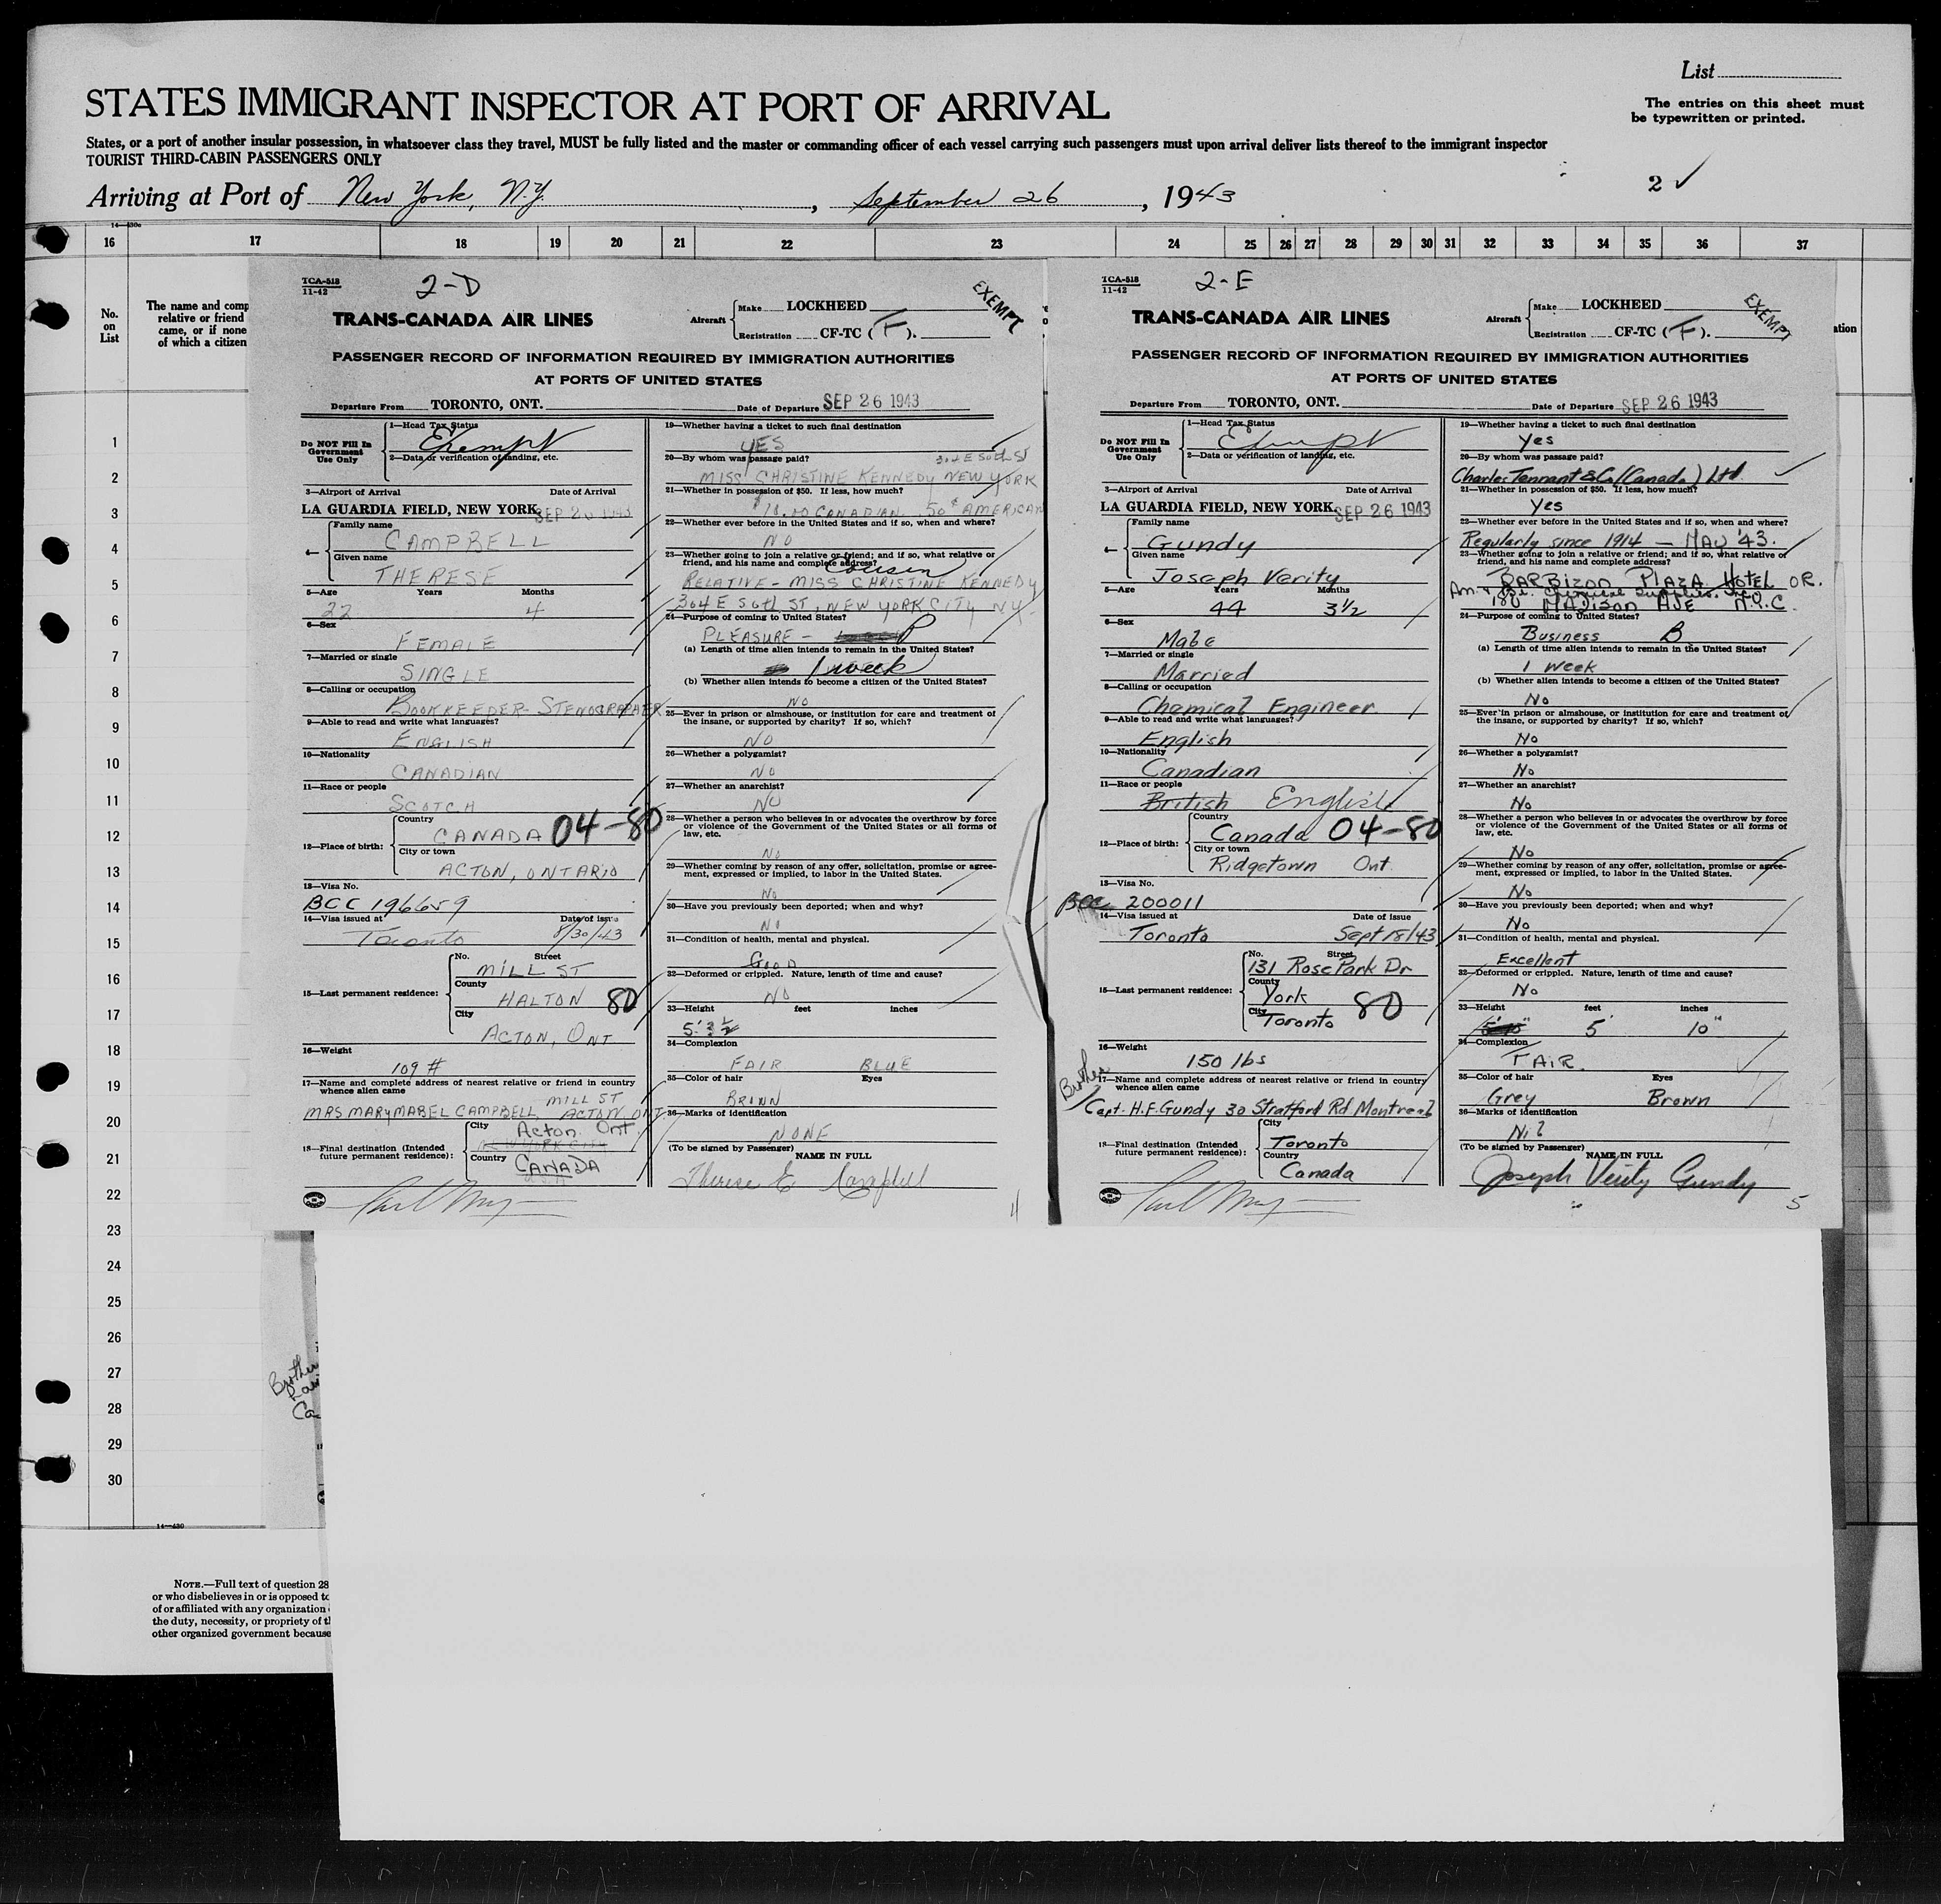 List
STATES IMMIGRANT INSPECTOR AT PORT OF ARRIVAL
The entries on this sheet must
be typewritten or printed.
States, or a port of another insular possession, in whatsoever class they travel, MUST be fully listed and the master or commanding officer of each vessel carrying such passengers must upon arrival deliver lists thereof to the immigrant inspector
TOURIST THIRD-CABIN PASSENGERS ONLY
2 ✓
Arriving at Port of New York, N.Y., September 26, 1943
14—430c
16 17 18 19 20 21 22 23 24 25 26 27 28 29 30 31 32 33 34 35 36 37
No.
on
List
The name and comp
relative or friend
came, or if none
of which a citizen
ation
1
2
3
4
5
6
7
8
9
10
11
12
13
14
15
16
17
18
19
20
21
22
23
24
25
26
27
28
29
30
TCA-518
11-42
2-D
EXEMPT
TRANS-CANADA AIR LINES
Aircraft
Make LOCKHEED
Registration CF-TC (F).
PASSENGER RECORD OF INFORMATION REQUIRED BY IMMIGRATION AUTHORITIES
AT PORTS OF UNITED STATES
Departure From TORONTO, ONT. Date of Departure SEP 26 1943
Do NOT Fill In
Government
Use Only
1—Head Tax Status
Exempt
2—Data or verification of landing, etc.
3—Airport of Arrival Date of Arrival
LA GUARDIA FIELD, NEW YORK SEP 26 1943
4—
Family name
CAMPBELL
Given name
THERESE
5—Age Years Months
22 4
6—Sex
FEMALE
7—Married or single
SINGLE
8—Calling or occupation
BOOKKEEPER-STENOGRAPHER
9—Able to read and write what languages?
ENGLISH
10—Nationality
CANADIAN
11—Race or people
SCOTCH
12—Place of birth:
Country
CANADA 04-80
City or town
ACTON, ONTARIO
13—Visa No.
BCC 196659
14—Visa issued at Date of issue
Toronto 8/30/43
15—Last permanent residence:
No. Street
MILL ST
County
HALTON 80
City
ACTON, ONT
16—Weight
109 #
17—Name and complete address of nearest relative or friend in country
whence alien came
MILL ST
MRS MARY MABEL CAMPBELL ACTON ONT.
18—Final destination (Intended
future permanent residence):
City
Acton Ont
NEW YORK CITY
Country
CANADA
19—Whether having a ticket to such final destination
YES
20—By whom was passage paid?
304 E 50th St
MISS CHRISTINE KENNEDY NEW YORK
21—Whether in possession of $50. If less, how much?
CANADIAN 50¢ AMERICAN
22—Whether ever before in the United States and if so, when and where?
NO
23—Whether going to join a relative or friend; and if so, what relative or
friend, and his name and complete address?
Cousin
RELATIVE - MISS CHRISTINE KENNEDY
304 E 50th ST, NEW YORK CITY NY
24—Purpose of coming to United States?
PLEASURE - P
(a) Length of time alien intends to remain in the United States?
1 week
(b) Whether alien intends to become a citizen of the United States?
NO
25—Ever in prison or almshouse, or institution for care and treatment of
the insane, or supported by charity? If so, which?
NO
26—Whether a polygamist?
NO
27—Whether an anarchist?
NO
28—Whether a person who believes in or advocates the overthrow by force
or violence of the Government of the United States or all forms of
law, etc.
No
29—Whether coming by reason of any offer, solicitation, promise or agree-
ment, expressed or implied, to labor in the United States.
No
30—Have you previously been deported; when and why?
No
31—Condition of health, mental and physical.
GOOD
32—Deformed or crippled. Nature, length of time and cause?
NO
33—Height feet inches
5'
34—Complexion
FAIR BLUE
35—Color of hair Eyes
BROWN
36—Marks of identification
NONE
(To be signed by Passenger) NAME IN FULL
Therese E Campbell
4
TCA-518
11-42
2-E
EXEMPT
TRANS-CANADA AIR LINES
Aircraft
Make LOCKHEED
Registration CF-TC (F).
PASSENGER RECORD OF INFORMATION REQUIRED BY IMMIGRATION AUTHORITIES
AT PORTS OF UNITED STATES
Departure From TORONTO, ONT. Date of Departure SEP 26 1943
Do NOT Fill In
Government
Use Only
1—Head Tax Status
Exempt
2—Data or verification of landing, etc.
3—Airport of Arrival Date of Arrival
LA GUARDIA FIELD, NEW YORK SEP 26 1943
4—
Family name
Gundy
Given name
Joseph Verity
5—Age Years Months
44 3½
6—Sex
Male
7—Married or single
Married
8—Calling or occupation
Chemical Engineer
9—Able to read and write what languages?
English
10—Nationality
Canadian
11—Race or people
British English
12—Place of birth:
Country
Canada 04-80
City or town
Ridgetown Ont
13—Visa No.
BCC 200011
14—Visa issued at Date of issue
Toronto Sept 18/43
15—Last permanent residence:
No. Street
131 Rose Park Dr
County
York 80
City
Toronto
16—Weight
150 lbs
Brother
17—Name and complete address of nearest relative or friend in country
whence alien came
Capt. H.F. Gundy 30 Stratford Rd Montreal
18—Final destination (Intended
future permanent residence):
City
Toronto
Country
Canada
19—Whether having a ticket to such final destination
Yes
20—By whom was passage paid?
Charles Tennant & Co (Canada) Ltd
21—Whether in possession of $50. If less, how much?
Yes
22—Whether ever before in the United States and if so, when and where?
Regularly since 1914 — MAY '43.
23—Whether going to join a relative or friend; and if so, what relative or
friend, and his name and complete address?
BARBIZON PLAZA HOTEL OR.
Am. & Br. Chemical Supplies. Inc.
180 MADISON AVE N.Y.C.
24—Purpose of coming to United States?
Business B
(a) Length of time alien intends to remain in the United States?
1 Week
(b) Whether alien intends to become a citizen of the United States?
No
25—Ever in prison or almshouse, or institution for care and treatment of
the insane, or supported by charity? If so, which?
No
26—Whether a polygamist?
No
27—Whether an anarchist?
No
28—Whether a person who believes in or advocates the overthrow by force
or violence of the Government of the United States or all forms of
law, etc.
No
29—Whether coming by reason of any offer, solicitation, promise or agree-
ment, expressed or implied, to labor in the United States.
No
30—Have you previously been deported; when and why?
No
31—Condition of health, mental and physical.
Excellent
32—Deformed or crippled. Nature, length of time and cause?
No
33—Height feet inches
5'10" 5' 10"
34—Complexion
FAIR.
35—Color of hair Eyes
Grey Brown
36—Marks of identification
Nil
(To be signed by Passenger) NAME IN FULL
Joseph Verity Gundy
5
Brother
Ca
14—430
NOTE.—Full text of question 28
or who disbelieves in or is opposed to
of or affiliated with any organization
the duty, necessity, or propriety of th
other organized government because